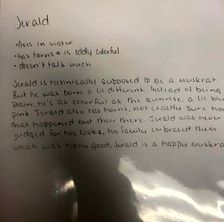 Jurald
• lives in water
• has horns & is oddly colorful
• doesn't talk much
Jurald is technically supposed to be a muskrat.
But he was born a lil different. Instead of being
plain, he's as colorful as the sunrise, a lil blu
pink. Jurald also has horns, not exactly sure how
that happened but their there. Jurald was never
judged for his looks, his family embraced them
which was really good. Jurald is a happy muskra